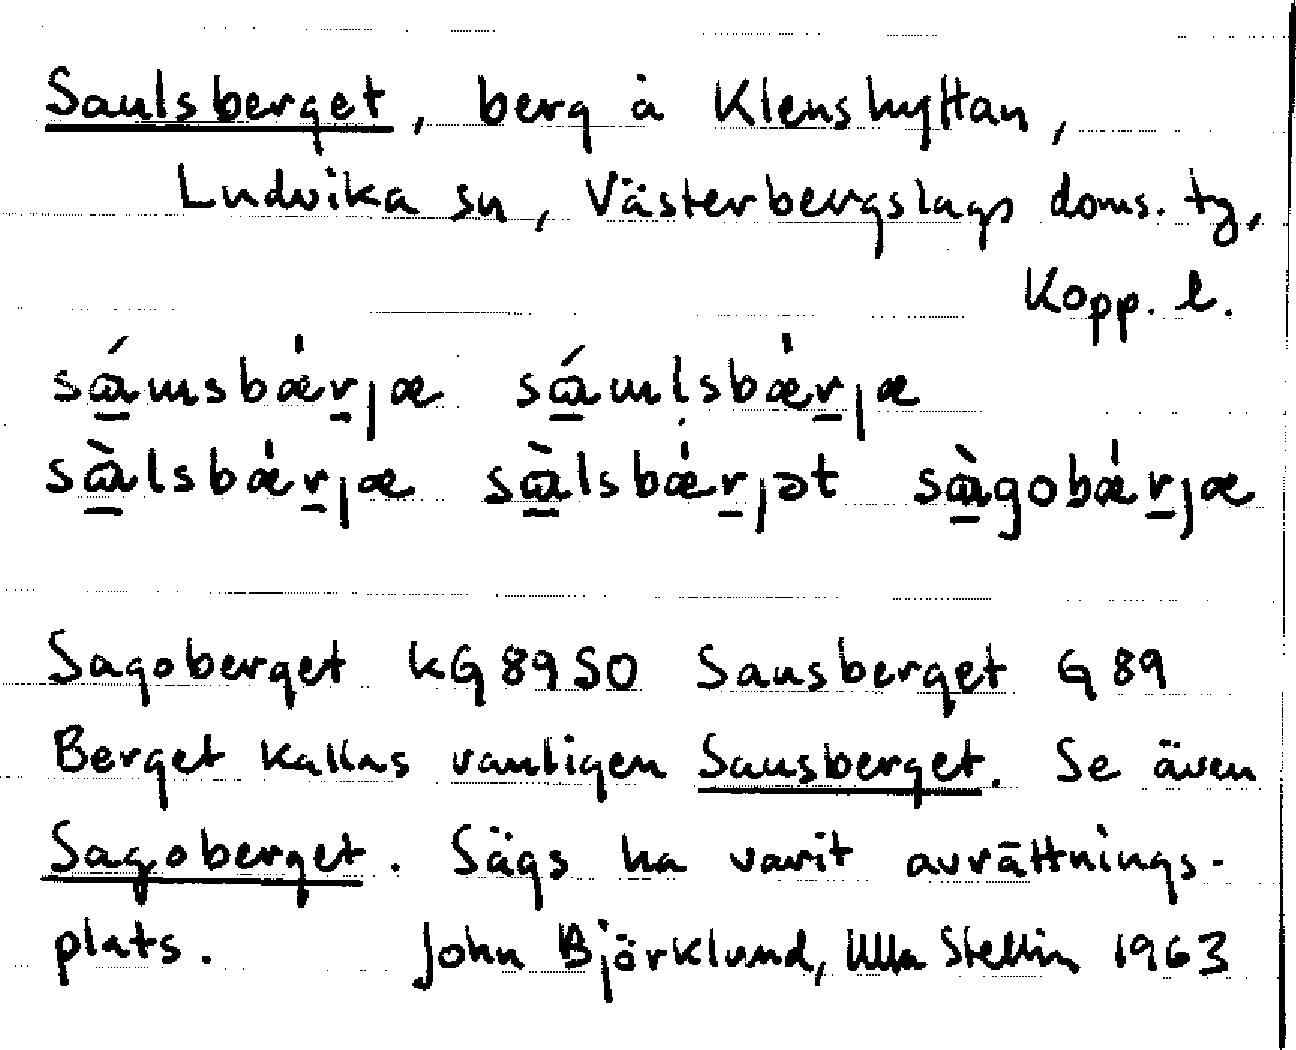 Saulsberget, berg å Klenshyttan,
Ludvika sn, Västerbergslags doms. tg,
Kopp. l.
Sagoberget kG 89 SO Sausberget G 89
Berget kallas vanligen Sausberget. Se även
Sagoberget. Sägs ha varit avrättnings-
plats. John Björklund, Ulla Stellin 1963